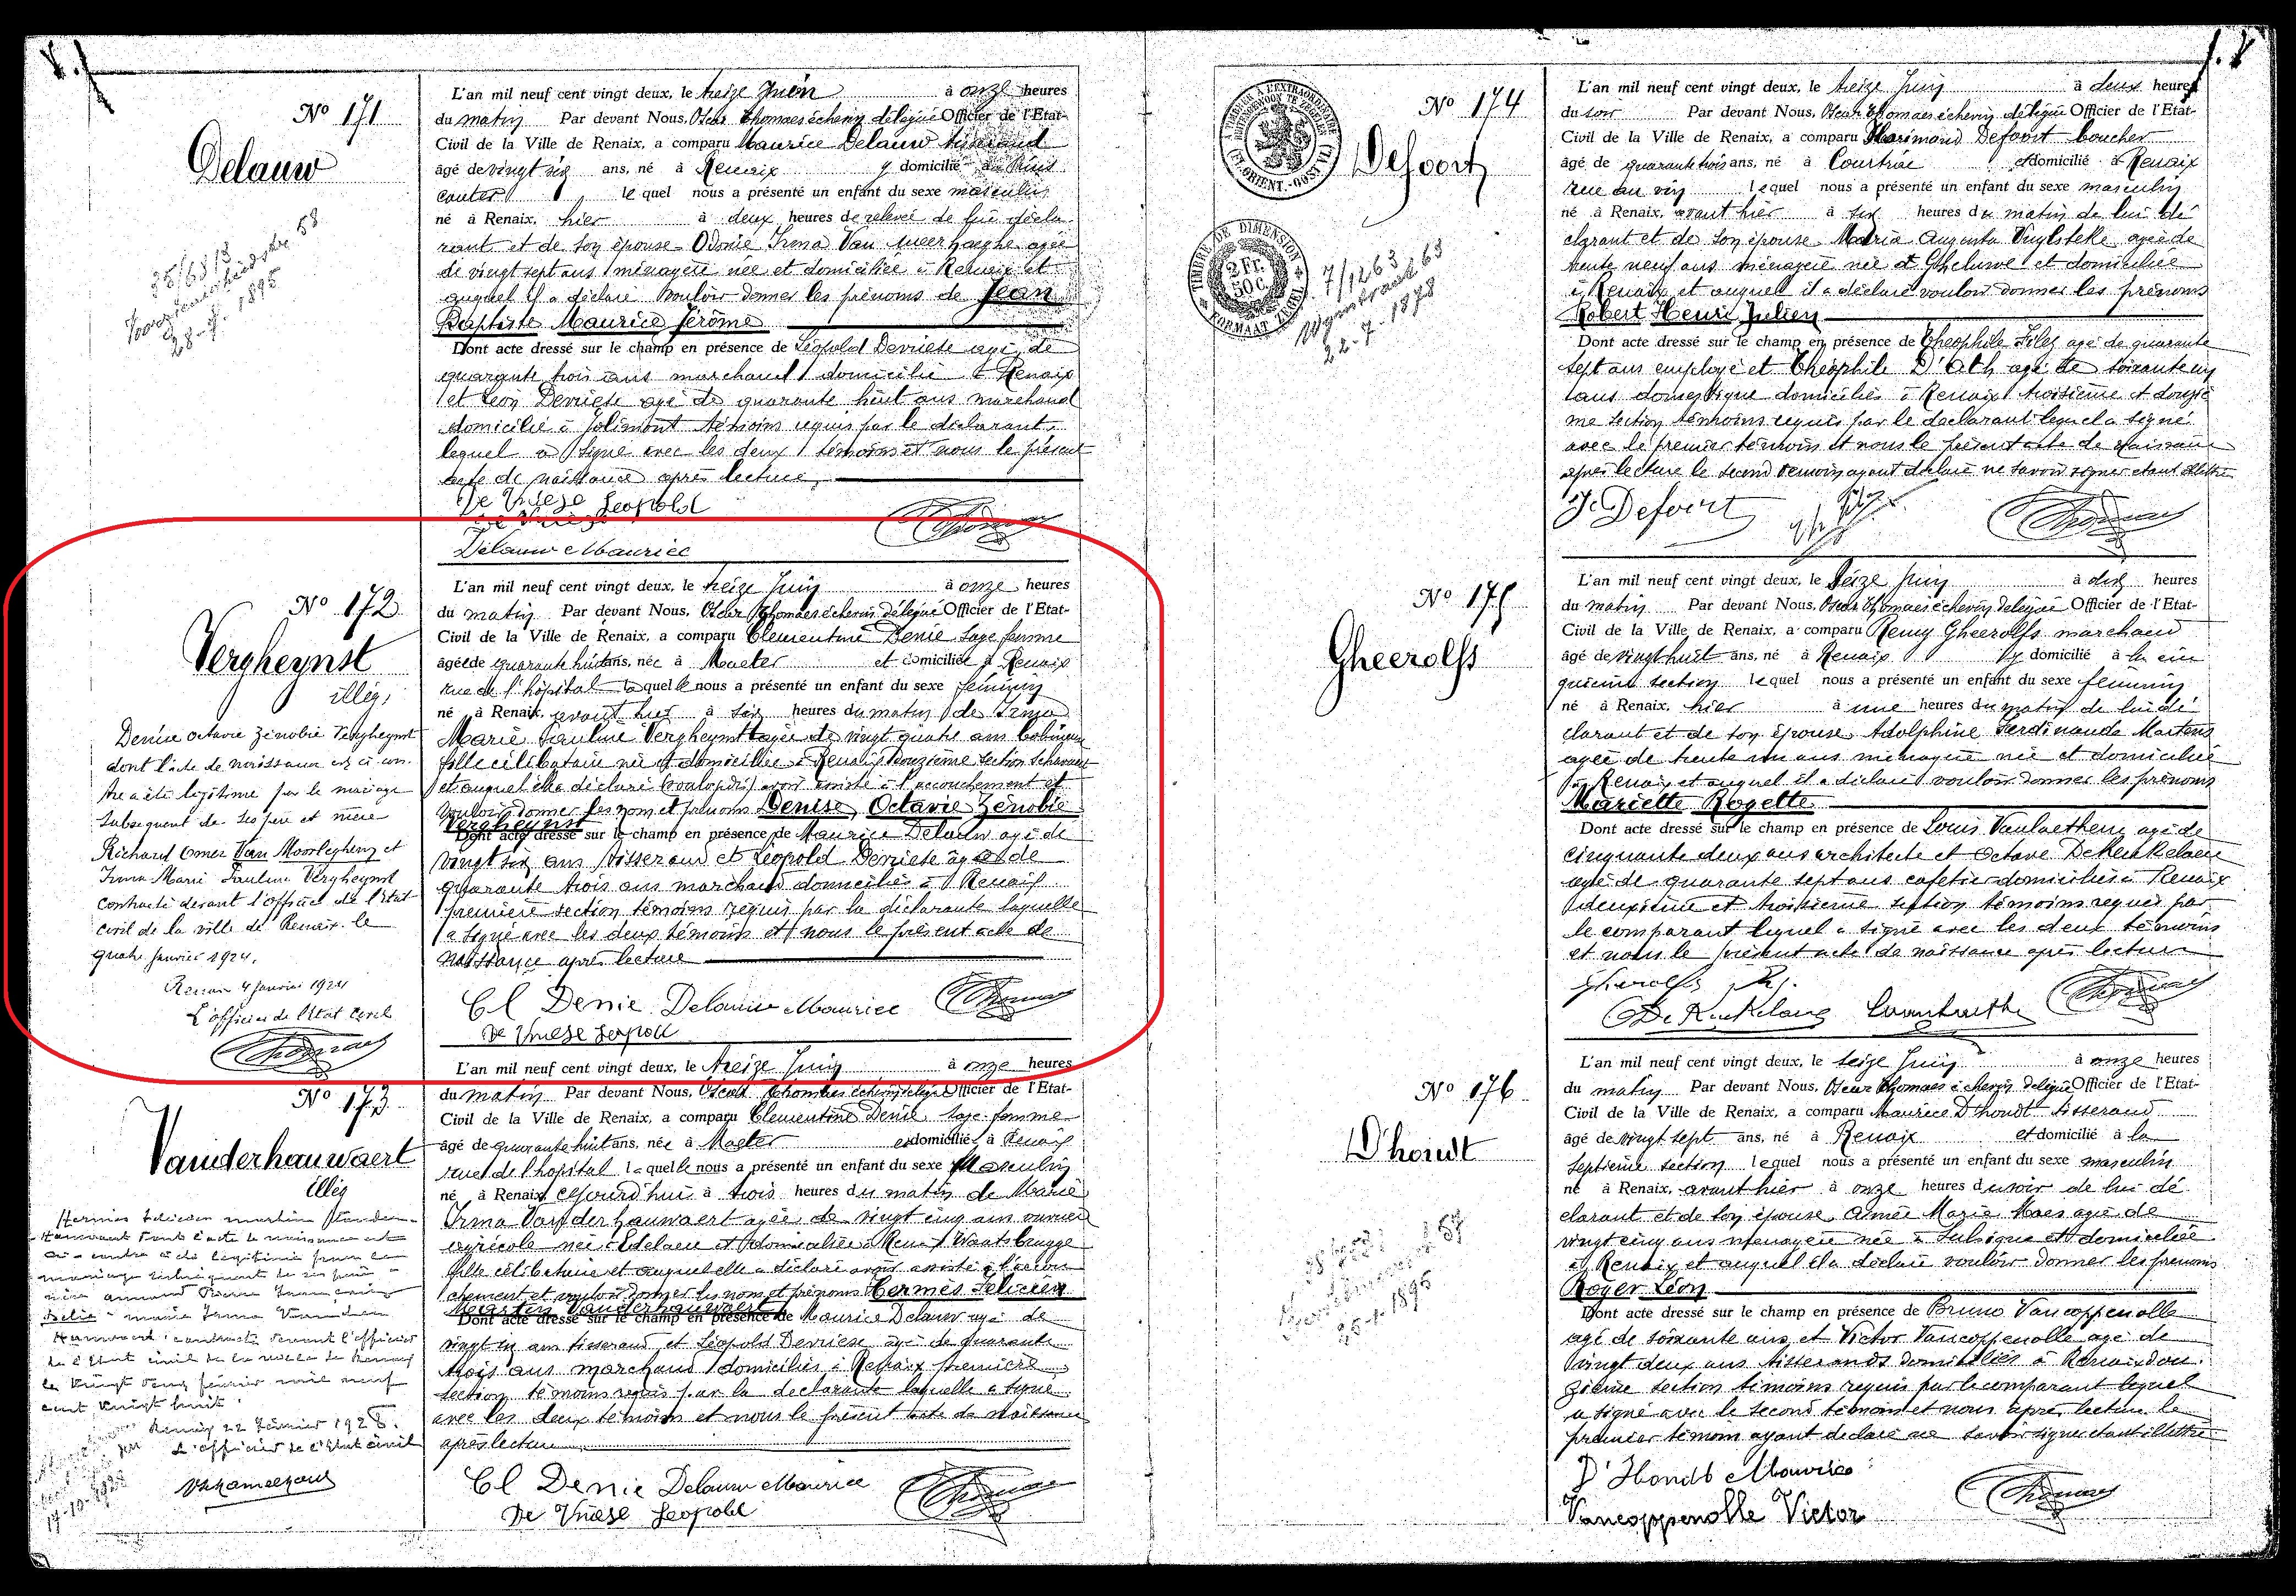 N° 171
Delauw
L'an mil neuf cent vingt deux, le treize Juin à onze heures
du matin Par devant Nous, Oscar Thomaes échevin délégué Officier de l'Etat-
Civil de la Ville de Renaix, a comparu Maurice Delauw tisserand
âgé de vingt six ans, né à Renaix y domicilié
couter lequel nous a présenté un enfant du sexe masculin
né à Renaix, hier à deux heures de relevée de lui décla
rant et de son épouse Odonie Irma Van agée
de vingt sept ans ménagère née et domiciliée à Renaix et
auquel il a déclaré vouloir donner les prénoms de Jean
Baptiste Maurice Jérôme
Dont acte dressé sur le champ en présence de Léopold Devriese agé de
quarante trois ans marchand domicilié à Renaix
et Léon Devriese agé de quarante huit ans marchand
domicilié à Jolimont témoins requis par le déclarant,
lequel a signé avec les deux témoins et nous le présent
acte de naissance après lecture
De Vriese Leopold
Delauw Maurice
N° 172
Vergheynst
illég.
L'an mil neuf cent vingt deux, le treize Juin à onze heures
du matin Par devant Nous, Oscar Thomaes échevin délégué Officier de l'Etat-
Civil de la Ville de Renaix, a comparu Clementine Denie sage femme
âgée de quarante huit ans, née à Maeter et domiciliée à Renaix
rue de l'hôpital laquelle nous a présenté un enfant du sexe féminin
né à Renaix, avant hier à six heures du matin de Irma
Marie Pauline Vergheynst agée de vingt quatre ans bobineuse
fille célibataire née et domiciliée à Renaix douzième section
et auquel elle a déclaré avoir assisté à l'accouchement et
vouloir donner les nom et prénoms Denise Octavie Zénobie
Vergheynst
Dont acte dressé sur le champ en présence de Maurice Delauw agé de
vingt six ans tisserand et Léopold Devriese agé de
quarante trois ans marchand domiciliés à Renaix
première section témoins requis par la déclarante laquelle
a signé avec les deux témoins et nous le présent acte de
naissance après lecture
Cl Denie Delauw Maurice
De Vriese Leopold
Denise Octavie Zénobie Vergheynst
dont l'acte de naissance est ci con
tre a été légitimée par le mariage
subsequent de ses père et mère
Richard Omer Van Moorleghem et
Irma Marie Pauline Vergheynst
contracté devant l'officier de l'état
civil de la ville de Renaix le
quatre janvier 1924.
Renaix 4 janvier 1924
L'officier de l'état civil
N° 173
Vanderhauwaert
illég
L'an mil neuf cent vingt deux, le treize Juin à onze heures
du matin Par devant Nous, Oscar Thomaes échevin délégué Officier de l'Etat-
Civil de la Ville de Renaix, a comparu Clementine Denie sage-femme
âgé de quarante huit ans, née à Maeter et domicilié à Renaix
rue de l'hôpital laquelle nous a présenté un enfant du sexe Masculin
né à Renaix cejourd'hui à trois heures du matin de Marie
Irma Vanderhauwaert agée de vingt cinq ans ouvrière
agricole née à Edelaere et domiciliée à Renaix Waatsbrugge
fille célibataire et auquel elle a déclaré avoir assisté à l'accou
chement et vouloir donner les nom et prénoms Hermès Félicien
Martin Vanderhauwaert
Dont acte dressé sur le champ en présence de Maurice Delauw agé de
vingt six ans tisserand et Léopold Devriese agé de quarante
trois ans marchand domiciliés à Renaix première
section témoins requis par la déclarante laquelle a signé
avec les deux témoins et nous le présent acte de naissance
après lecture
Cl Denie Delauw Maurice
De Vriese Leopold
Renaix 22 Février 1928.
L'officier de l'état civil
N° 174
Defoort
L'an mil neuf cent vingt deux, le treize Juin à deux heures
du soir Par devant Nous, Oscar Thomaes échevin délégué Officier de l'Etat-
Civil de la Ville de Renaix, a comparu Defoort boucher
âgé de quarante trois ans, né à Courtrai et domicilié à Renaix
rue au vin lequel nous a présenté un enfant du sexe masculin
né à Renaix, avant hier à six heures du matin de lui dé
clarant et de son épouse Maria Augusta Vuylsteke agée de
trente neuf ans ménagère née à Gheluwe et domiciliée
à Renaix et auquel il a déclaré vouloir donner les prénoms
Robert Henri Julien
Dont acte dressé sur le champ en présence de Théophile agé de quarante
sept ans employé et Théophile D'Ath agé de soixante
ans domestique domiciliés à Renaix troisième et douziè
me section témoins requis par le déclarant lequel a signé
avec le premier témoin et nous le présent acte de naissance
après lecture le second témoin ayant déclaré ne savoir signer étant illettré
J. Defoort
TIMBRE DE DIMENSION
2 Fr. 50 c.
FORMAAT ZEGEL
N° 175
Gheerolfs
L'an mil neuf cent vingt deux, le seize Juin à dix heures
du matin Par devant Nous, Oscar Thomaes échevin délégué Officier de l'Etat-
Civil de la Ville de Renaix, a comparu Remy Gheerolfs marchand
âgé de vingt huit ans, né à Renaix y domicilié à la cin
quième section lequel nous a présenté un enfant du sexe féminin
né à Renaix, hier à une heures du matin de lui dé
clarant et de son épouse Adolphine Ferdinande Martens
agée de trente un ans ménagère née et domiciliée
à Renaix et auquel il a déclaré vouloir donner les prénoms
Mariette Rogette
Dont acte dressé sur le champ en présence de Louis Vanlaethem agé de
cinquante deux ans architecte et Octave DeKeukelaere
agé de quarante sept ans cafetier domiciliés à Renaix
deuxième et troisième section témoins requis par
le comparant lequel a signé avec les deux témoins
et nous le présent acte de naissance après lecture
N° 176
D'hondt
L'an mil neuf cent vingt deux, le seize Juin à onze heures
du matin Par devant Nous, Oscar Thomaes échevin délégué Officier de l'Etat-
Civil de la Ville de Renaix, a comparu Maurice D'hondt tisserand
âgé de vingt sept ans, né à Renaix et domicilié à la
septième section lequel nous a présenté un enfant du sexe masculin
né à Renaix, avant hier à onze heures du soir de lui dé
clarant et de son épouse Aimée Marie Maes agée de
vingt cinq ans ménagère née à Sulsique et domiciliée
à Renaix et auquel il a déclaré vouloir donner les prénoms
Roger Léon
Dont acte dressé sur le champ en présence de Bruno Vancoppenolle
agé de soixante ans et Victor Vancoppenolle agé de
vingt deux ans tisserands domiciliés à Renaix dou
zième section témoins requis par le comparant lequel
a signé avec le second témoin et nous après lecture le
premier témoin ayant déclaré ne savoir signer étant illettré
D'Hondt Maurice
Vancoppenolle Victor